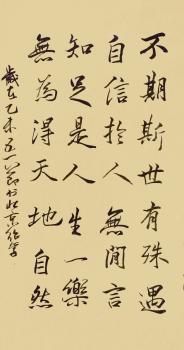 不期斯世有殊遇
自信於人無閒言
知足是人生一樂
無為得天地自然
歲在乙未五一節於北京作字